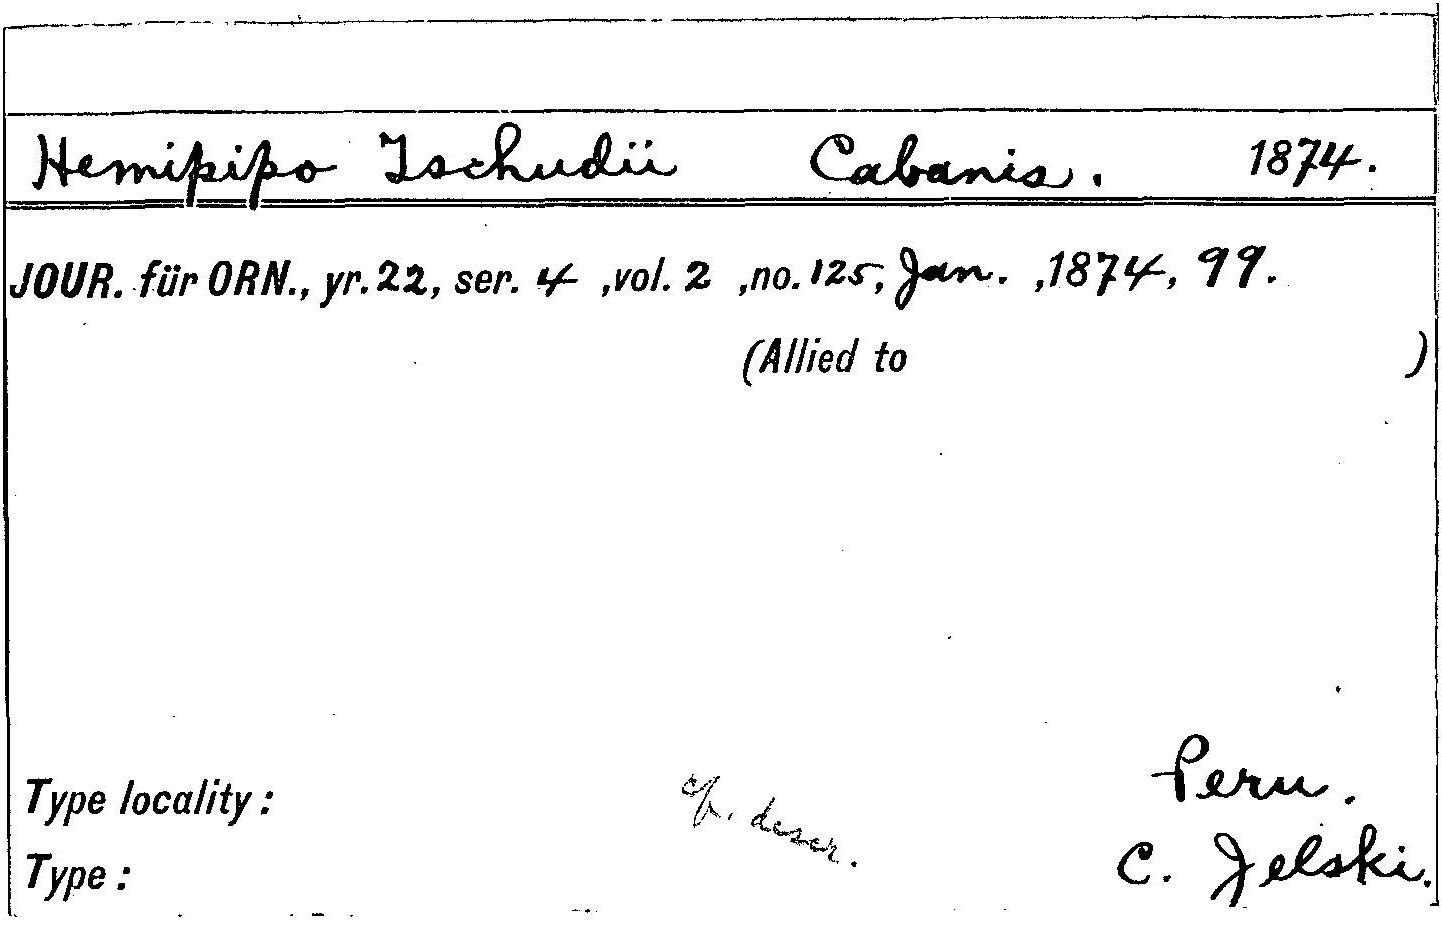 Hemipipo Tschudii Cabanis. 1874.
JOUR. für ORN., yr. 22, ser. 4 ,vol. 2 ,no. 125, Jan. ,1874, 99.
(Allied to )
Peru.
Type locality : cf. descr.
C. Jelski.
Type :